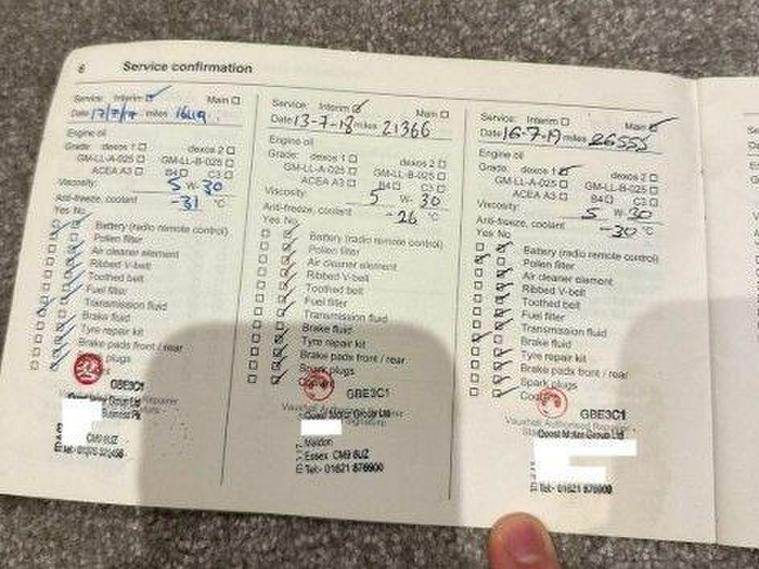 6 Service confirmation
Service: Interim Main
Date miles
Engine oil
Grade: dexos 1 dexos 2
GM-LL-A-025 GM-LL-B-025
ACEA A3 B4 C3
Viscosity: 5 W- 30
Anti-freeze, coolant -31 °C
Yes No
Battery (radio remote control)
Pollen filter
Air cleaner element
Ribbed V-belt
Toothed belt
Fuel filter
Transmission fluid
Brake fluid
Tyre repair kit
Brake pads front / rear
plugs
GBE3C1
Quest Motor Group Ltd
Business Pk
CM9
Service: Interim Main
Date 13-7-18 miles 21366
Engine oil
Grade: dexos 1 dexos 2
GM-LL-A-025 GM-LL-B-025
ACEA A3 B4 C3
Viscosity: 5 W- 30
Anti-freeze, coolant -26 °C
Yes No
Battery (radio remote control)
Pollen filter
Air cleaner element
Ribbed V-belt
Toothed belt
Fuel filter
Transmission fluid
Brake fluid
Tyre repair kit
Brake pads front / rear
Spark plugs
GBE3C1
Vauxhall
Quest Motor Group Ltd
Maldon
Essex CM9 6UZ
Tel:- 01621 876900
Service: Interim Main
Date 16-7-19 miles 26555
Engine oil
Grade: dexos 1 dexos 2
GM-LL-A-025 GM-LL-B-025
ACEA A3 B4 C3
Viscosity: 5 W- 30
Anti-freeze, coolant -30 °C
Yes No
Battery (radio remote control)
Pollen filter
Air cleaner element
Ribbed V-belt
Toothed belt
Fuel filter
Transmission fluid
Brake fluid
Tyre repair kit
Brake pads front / rear
Spark plugs
GBE3C1
Vauxhall Authorised Repairer
Quest Motor Group Ltd
Tel:- 01621 876900